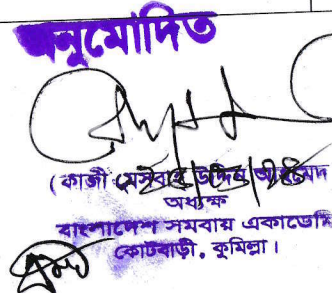 অনুমোদিত
(কাজী মেসবাহ উদ্দিন আহমেদ
অধ্যক্ষ
বাংলাদেশ সমবায় একাডেমি
কোটবাড়ী, কুমিল্লা।